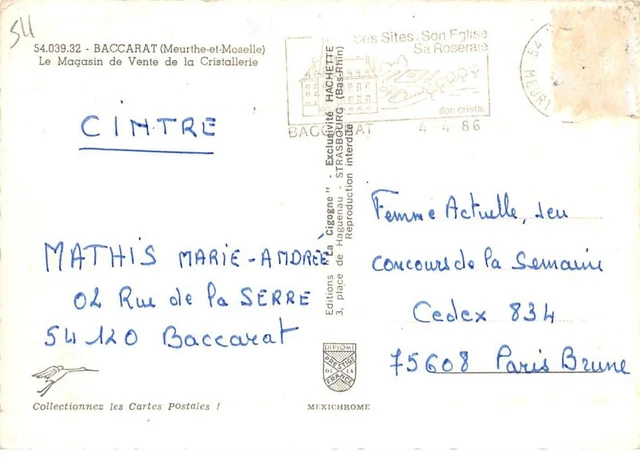 54
54.039.32 - BACCARAT (Meurthe-et-Moselle)
Le Magasin de Vente de la Cristallerie
CINTRE
MATHIS MARIE-ANDREÉ
02 Rue de la SERRE
54120 Baccarat
Collectionnez les Cartes Postales !
Editions "La Cigogne" - Exclusivité HACHETTE
3, place de Haguenau - STRASBOURG (Bas-Rhin)
Reproduction interdite
DIPLOME
PRESTIGE
DE LA
FRANCE
MEXICHROME
Ses Sites. Son Eglise
Sa Roseraie
son cristal
BACCARAT 4-4-86
54
MEURT
Femme Actuelle, Jeu
concours de la Semaine
Cedex 834
75608 Paris Brune